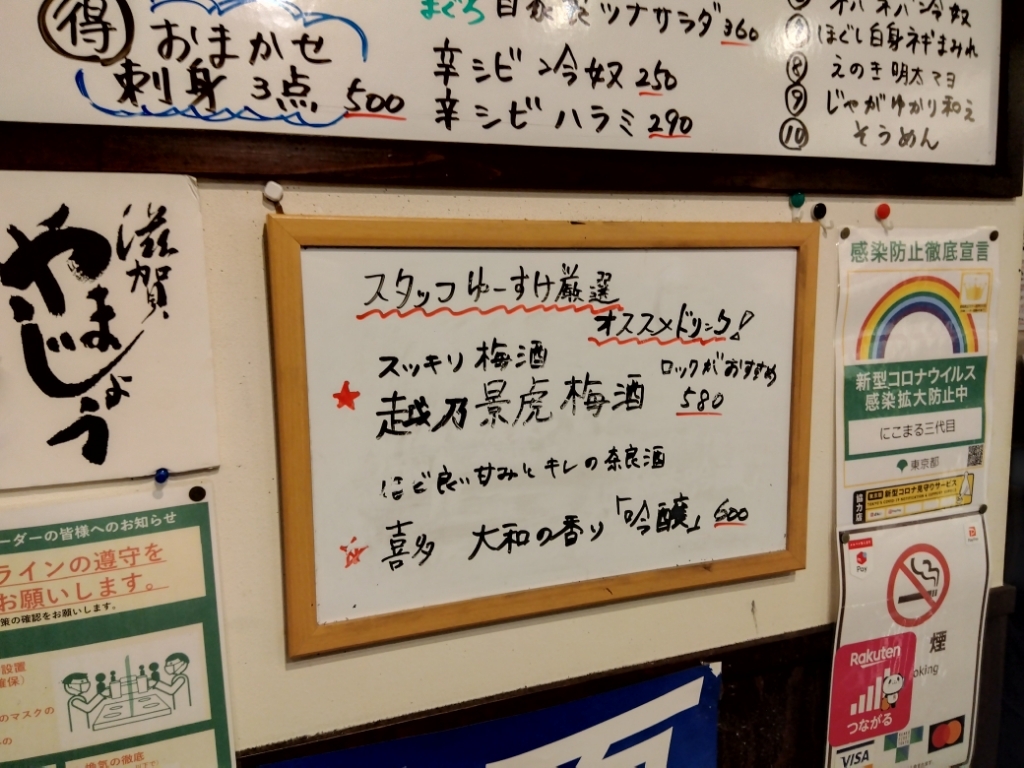 得 おまかせ
刺身 3点 500
まぐろ 自家製ツナサラダ 360
辛シビ冷奴 250
辛シビハラミ 290
ネバネバ冷奴
ほぐし白身ネギまみれ
⑧ えのき明太マヨ
⑨ じゃがゆかり和え
⑩ そうめん
滋賀
やまじょう
スタッフゆーすけ厳選
オススメドリンク!
スッキリ梅酒
ロックがおすすめ
★ 越乃景虎梅酒 580
ほど良い甘みとキレの奈良酒
☆ 喜多 大和の香り「吟醸」 600
感染防止徹底宣言
新型コロナウイルス
感染拡大防止中
にこまる三代目
東京都
協力店
新型コロナ見守りサービス
ーダーの皆様へのお知らせ
ラインの遵守を
お願いします。
策の確認をお願いします。
設置
確保)
のマスクの
換気の徹底
Pay
PayPay
煙
oking
Rakuten
つながる
VISA
mastercard